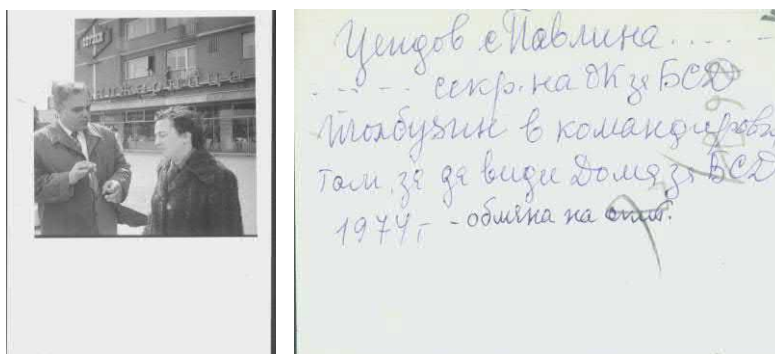 Цендов с Павлина .... -
..... секр. на ОК за БСД
Толбухин в командировка
там, за да види Дома за БСД
1974 г. - обмяна на